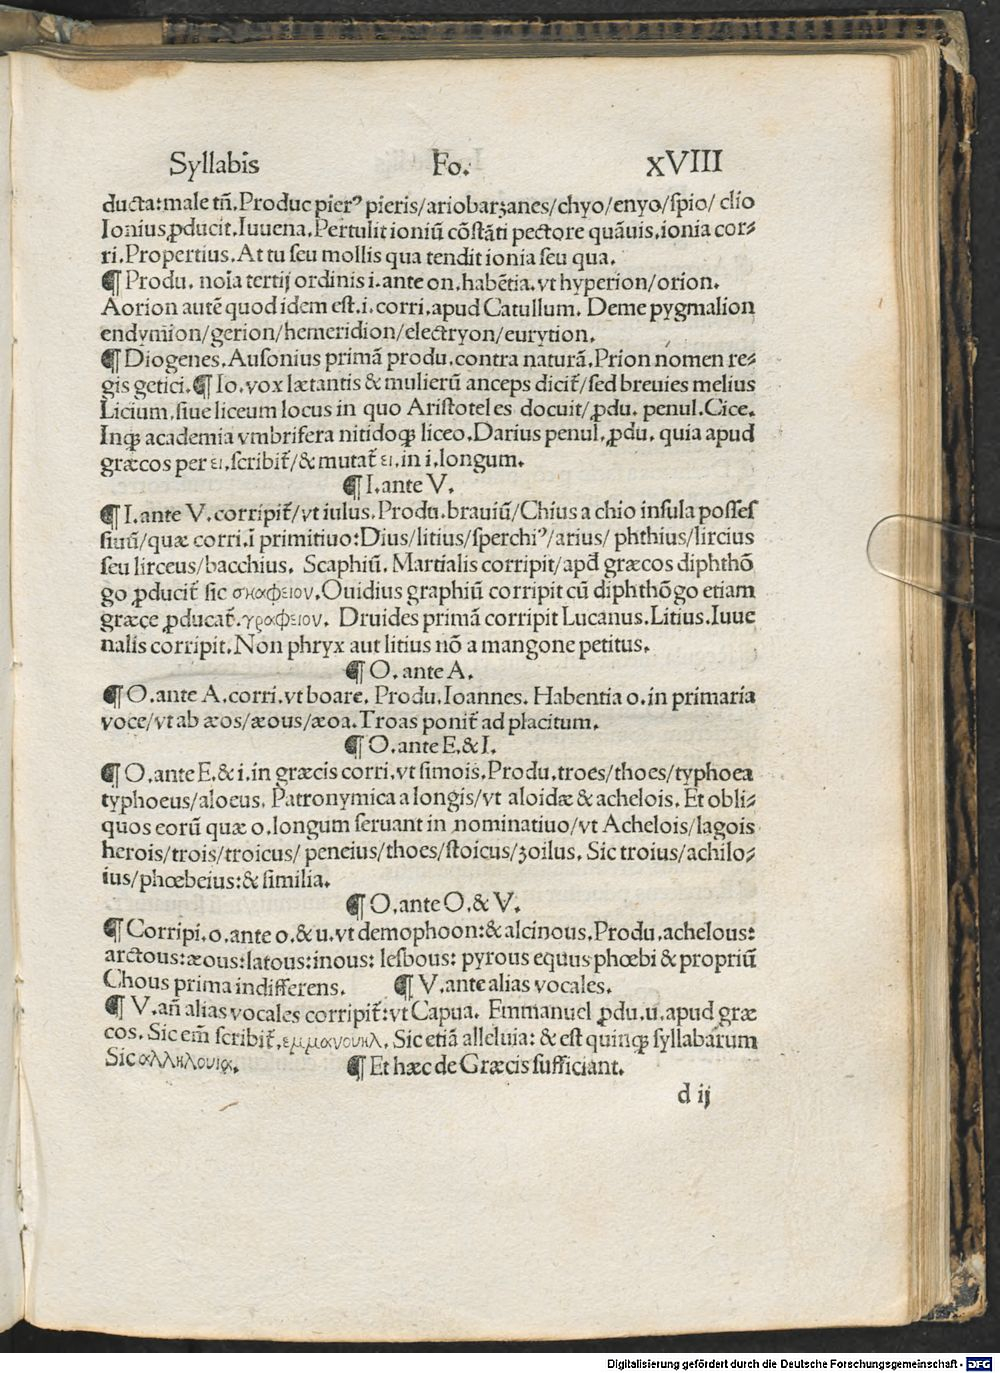 Syllabis Fo. xVIII
ducta:male tñ.Produc pierꝰ pieris/ariobarzanes/chyo/enyo/ſpio/ clio
Ionius ꝓducit.Iuuena.Pertulit ioniũ cõſtãti pectore quãuis.ionia cor⸗
ri.Propertius.At tu ſeu mollis qua tendit ionia ſeu qua.
¶ Produ. noĩa tertij ordinis i.ante on.habẽtia.vt hyperion/orion.
Aorion autẽ quod idem eſt.i.corri.apud Catullum. Deme pygmalion
endymion/gerion/hemeridion/electryon/eurytion.
¶ Diogenes.Auſonius primã produ.contra naturã.Prion nomen re⸗
gis getici.¶ Io.vox lætantis & mulierũ anceps dicit̃/ſed breuies melius
Licium.ſiue liceum locus in quo Ariſtoteles docuit/ꝓdu. penul.Cice.
Inqꝫ academia vmbrifera nitidoqꝫ liceo.Darius penul.ꝓdu. quia apud
græcos per ει.ſcribit̃/& mutat̃ ει.in i.longum.
¶ I.ante V.
¶ I.ante V.corripit̃/vt iulus.Produ.brauiũ/Chius a chio inſula poſſeſ
ſiuũ/quæ corri.i primitiuo:Dius/litius/ſperchiꝰ/arius/ phthius/lircius
ſeu lirceus/bacchius. Scaphiũ. Martialis corripit/apđ græcos diphthõ
go ꝓducit̃ ſic σκαφειον.Ouidius graphiũ corripit cũ diphthõgo etiam
græce ꝓducat̃.γραφειον. Druides primã corripit Lucanus.Litius.Iuue
nalis corripit.Non phryx aut litius nõ a mangone petitus.
¶ O. ante A.
¶ O.ante A.corri.vt boare. Produ.Ioannes. Habentia o.in primaria
voce/vt ab æos/æous/æoa.Troas ponit̃ ad placitum.
¶ O.ante E.& I.
¶ O.ante E.& i.in græcis corri.vt ſimois.Produ.troes/thoes/typhoea
typhoeus/aloeus. Patronymica a longis/vt aloidæ & achelois. Et obli⸗
quos eorũ quæ o.longum ſeruant in nominatiuo/vt Achelois/lagois
herois/trois/troicus/ peneius/thoes/ſtoicus/zoilus. Sic troius/achilo⸗
ius/phœbeius:& ſimilia.
¶ O.ante O.& V.
¶ Corripi.o.ante o.& u.vt demophoon:& alcinous.Produ.achelous:
arctous:æous:latous:inous: leſbous: pyrous equus phœbi & propriũ
Chous prima indifferens. ¶ V.ante alias vocales.
¶ V.añ alias vocales corripit̃:vt Capua. Emmanuel ꝓdu.u.apud græ
cos. Sic em̃ ſcribit̃.εμμανουηλ. Sic etiã alleluia: & eſt quinqꝫ ſyllabarum
Sic αλληλουια. ¶ Et hæc de Græcis ſufficiant.
d ij
Digitalisierung gefördert durch die Deutsche Forschungsgemeinschaft - DFG